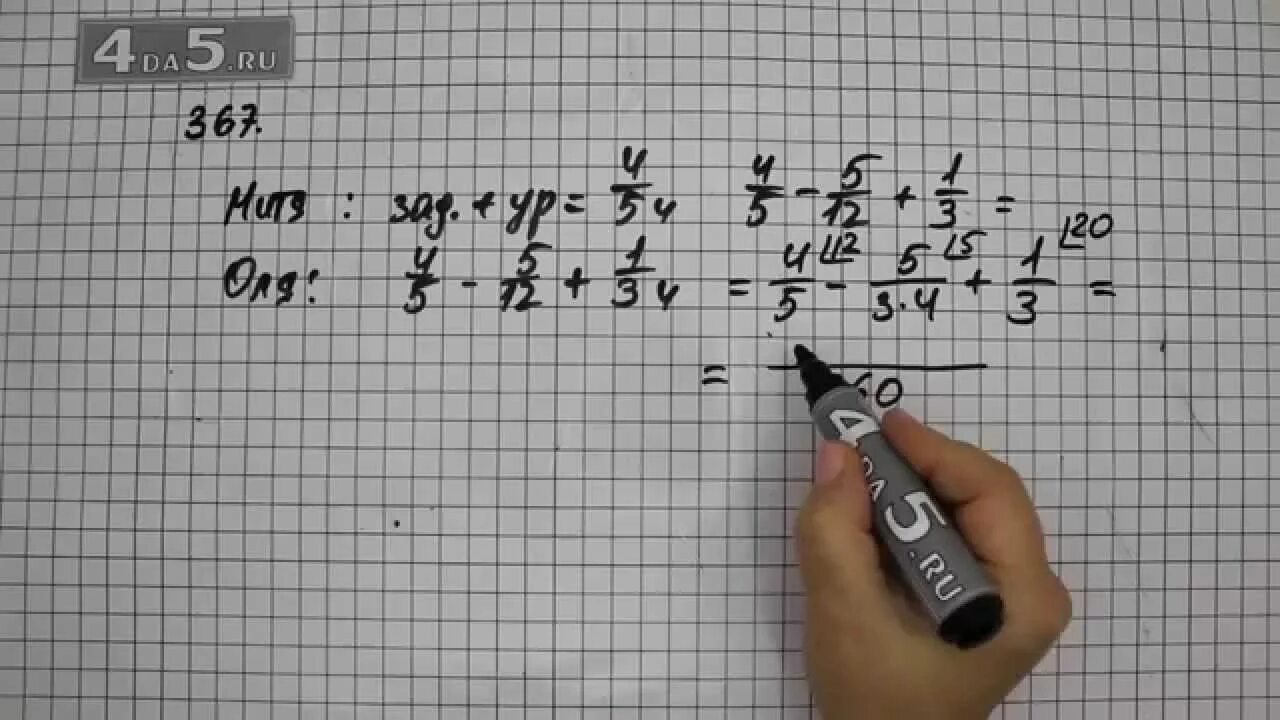 4DA5.RU
367.
Митя : зад. + ур = 4/5 ч 4/5 - 5/12 + 1/3 =
Оля: 4/5 - 5/12 + 1/3 ч = 4/5 ⌊12 - 5/3·4 ⌊5 + 1/3 ⌊20 =
= /60
4DA5.RU